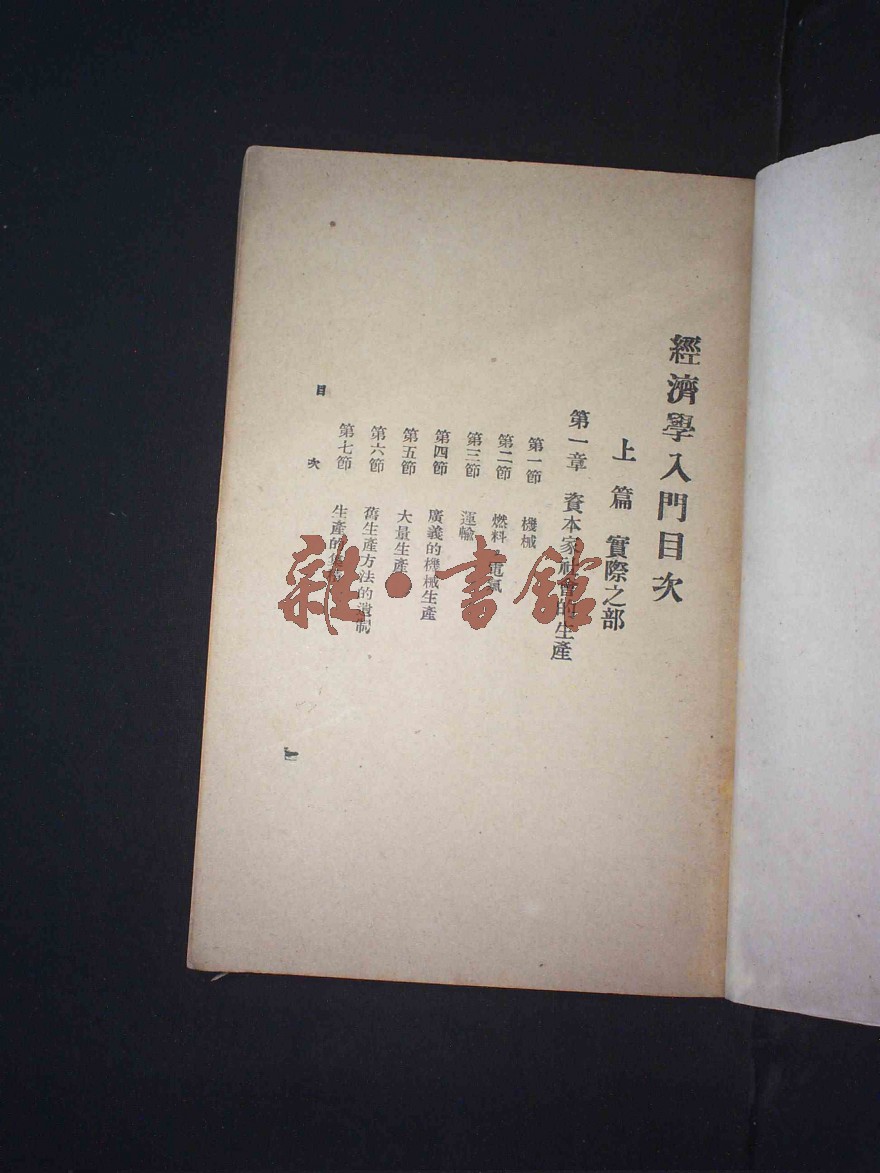 經濟學入門目次
上篇 實際之部
第一章 資本家社會的生產
第一節 機械
第二節 燃料 電氣
第三節 運輸
第四節 廣義的機械生產
第五節 大量生產
第六節 舊生產方法的遺制
第七節 生產的
目次
一
雜·書館